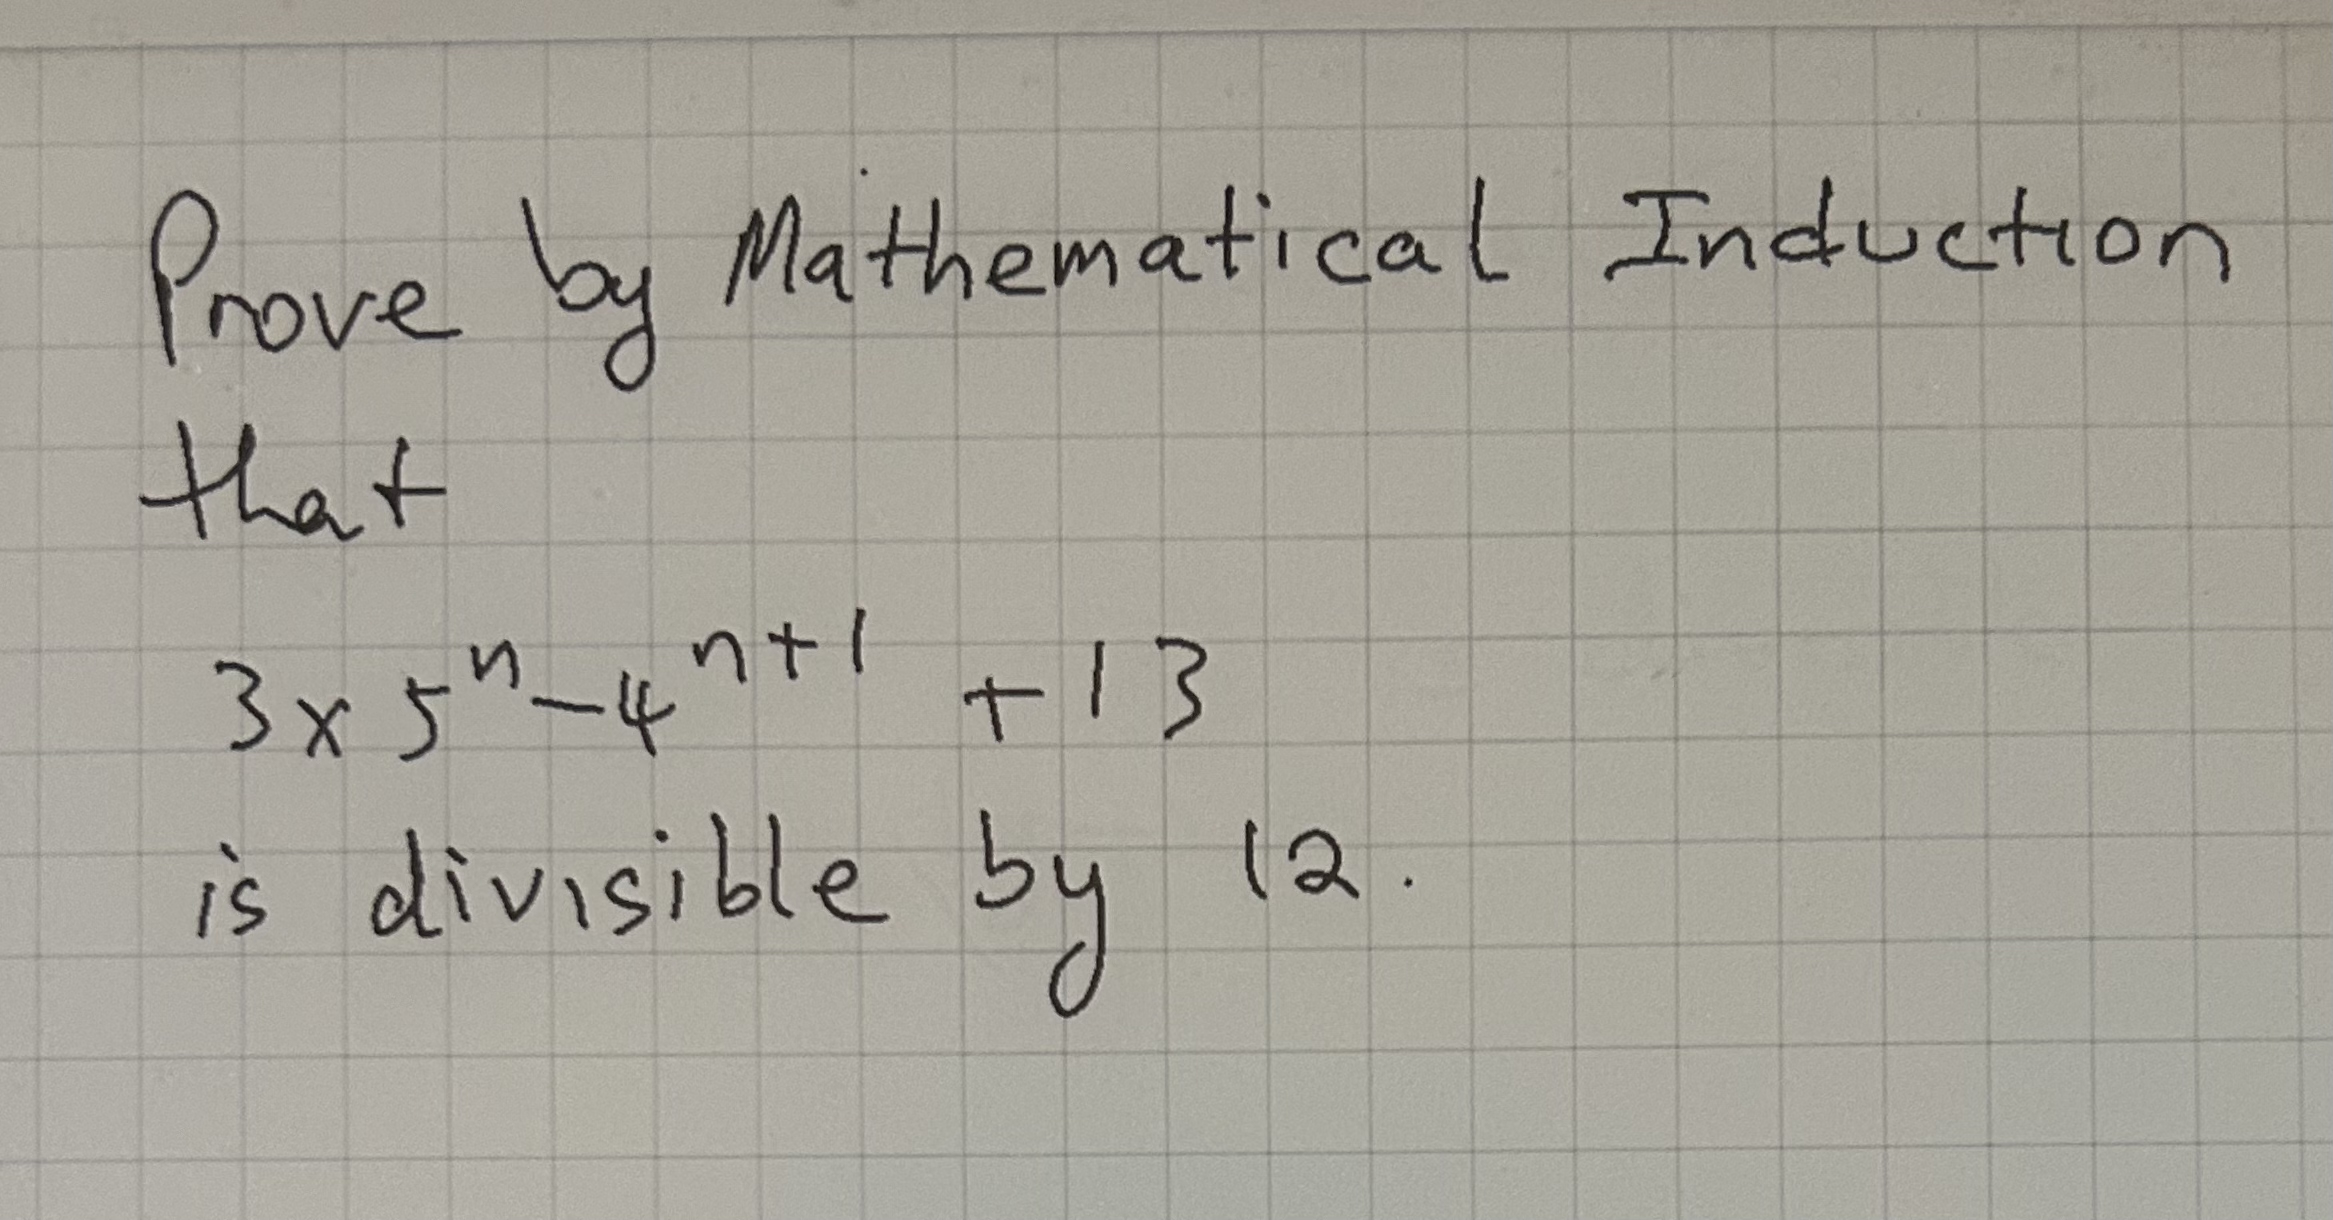 Prove by Mathematical Induction
that
3 x 5^n - 4^{n+1} + 13
is divisible by 12.